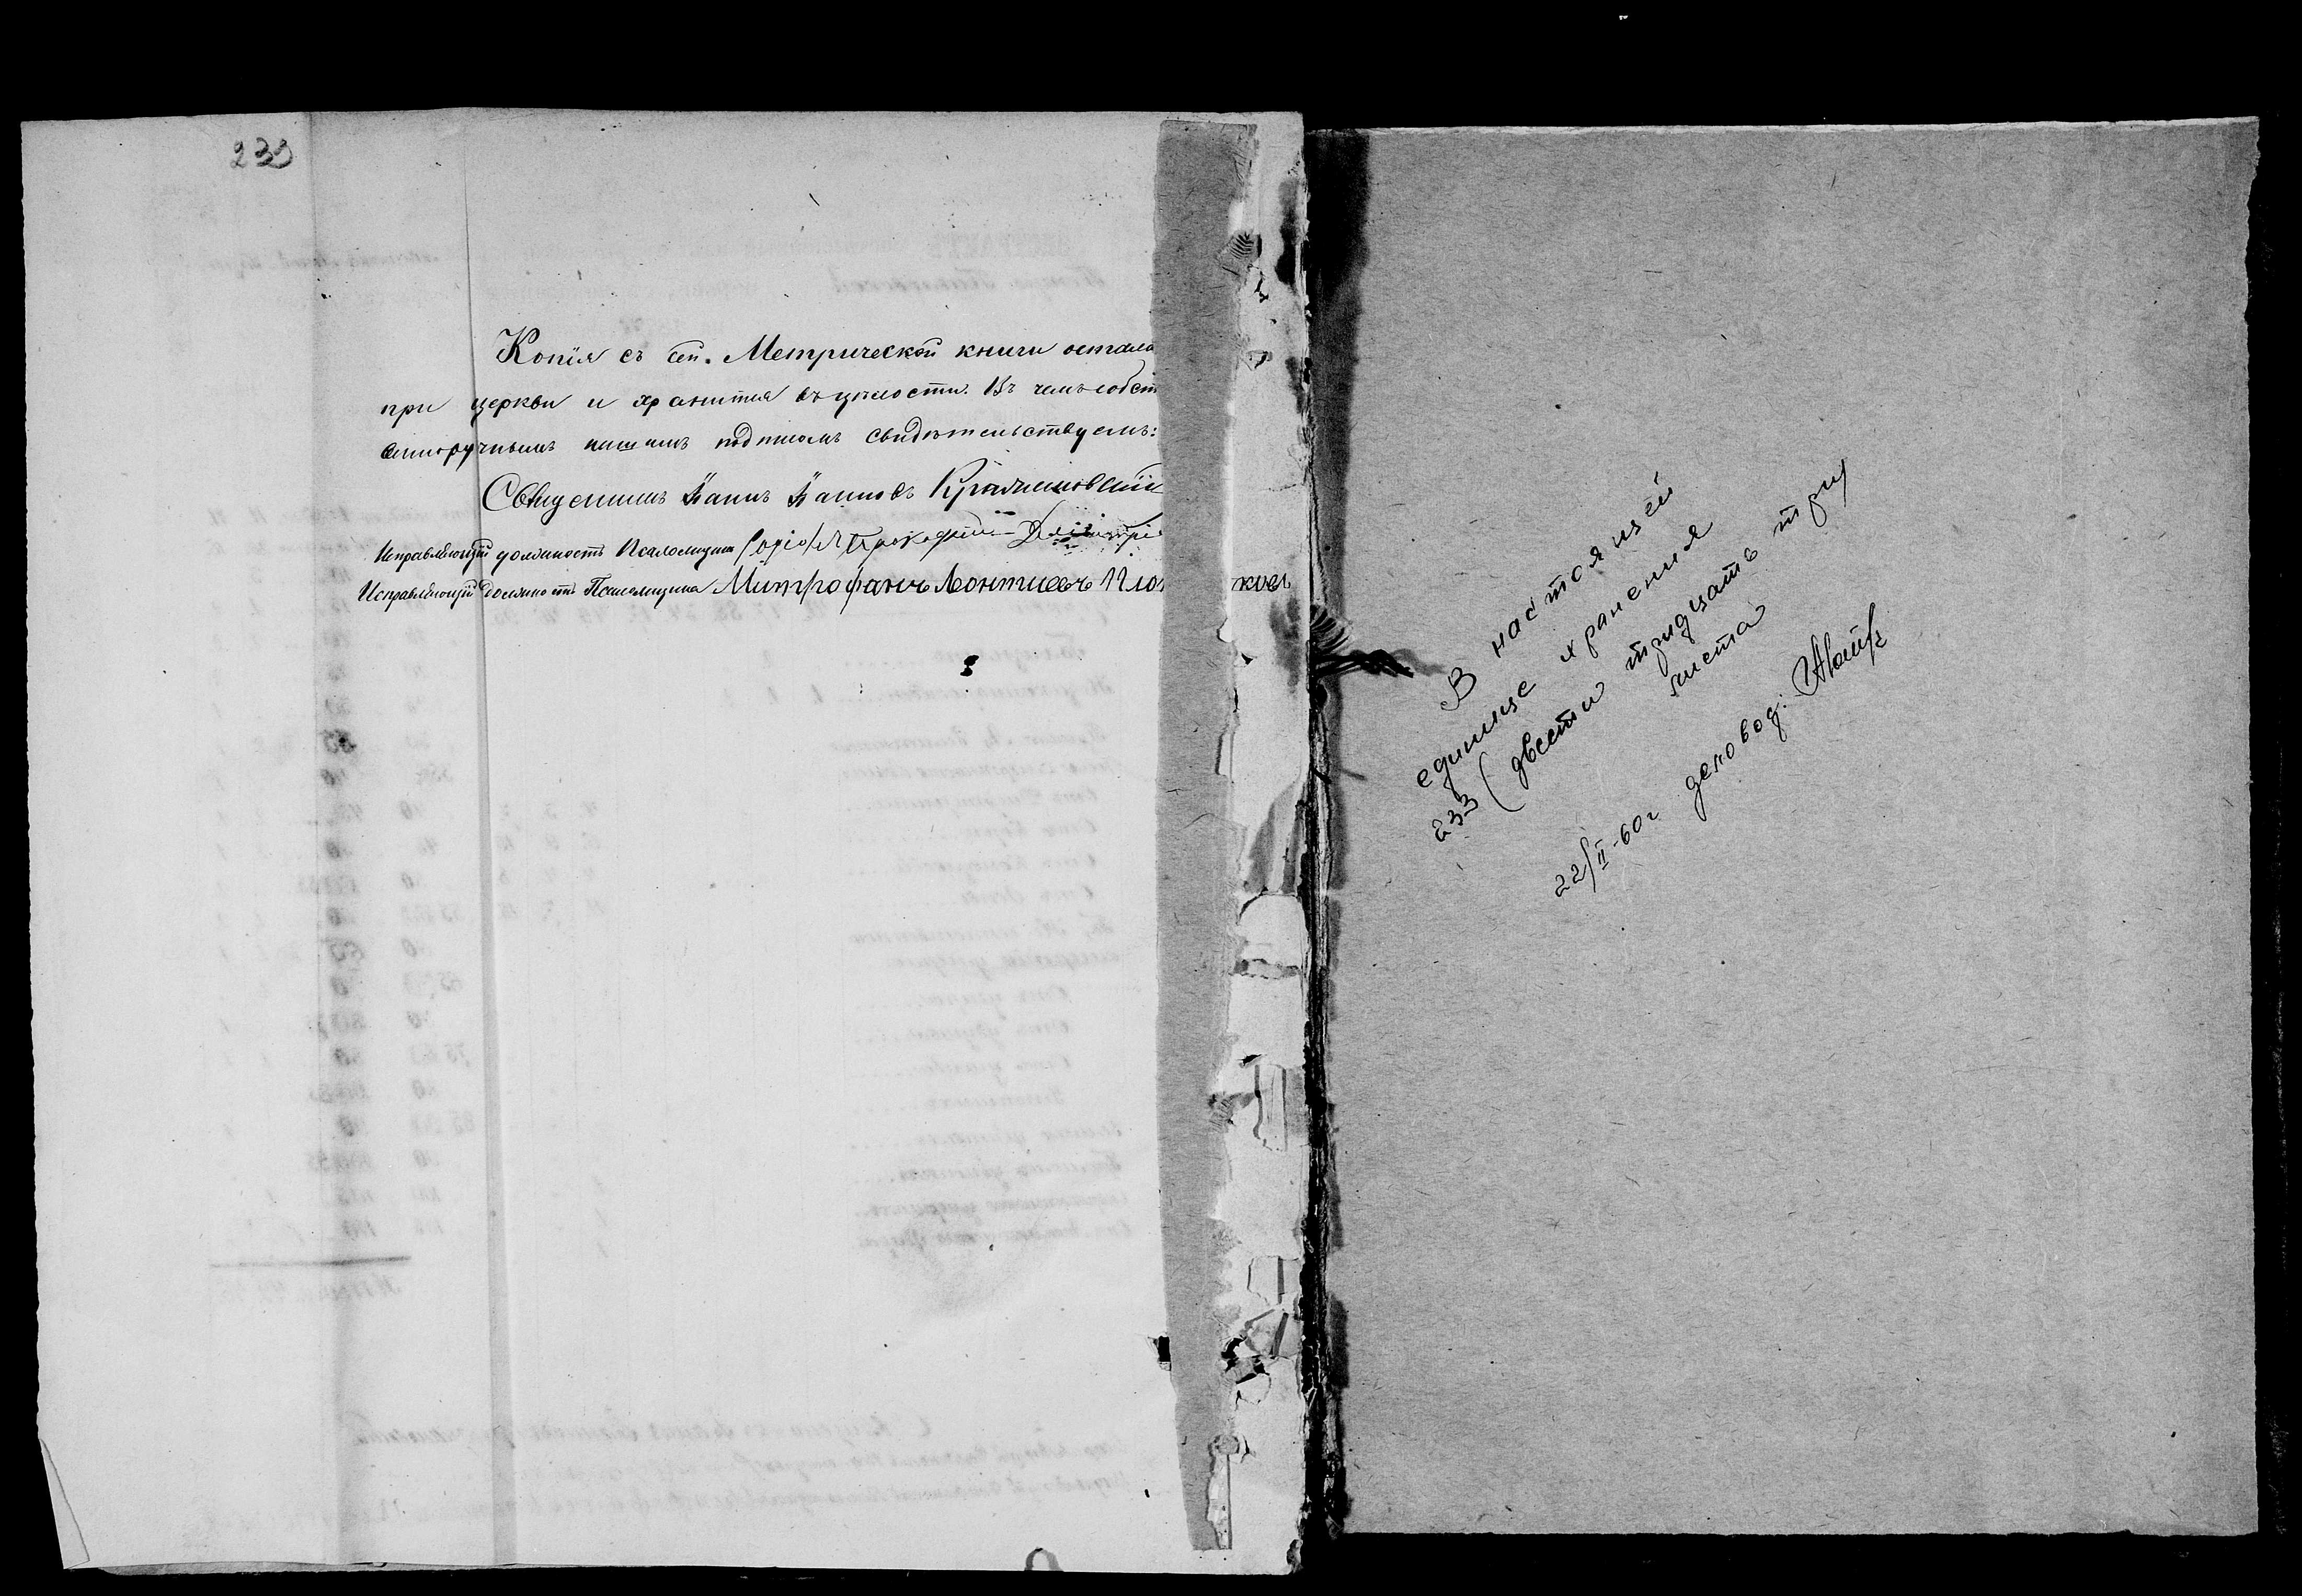 233
Копія съ сей. Метрической книги остала
при церкви и хранится въ цѣлости. Въ чемъ собст
венноручнымъ нашимъ подписомъ свидѣтельствуемъ:
Священникъ Іаннъ Іанновъ
Исправляющій должность Псаломщика
Исправляющій должность Псаломщика Митрофанъ Леонтиевъ
В настоящей
единице хранения
233 (двести тридцать три)
листа
22/II-60г деловод.